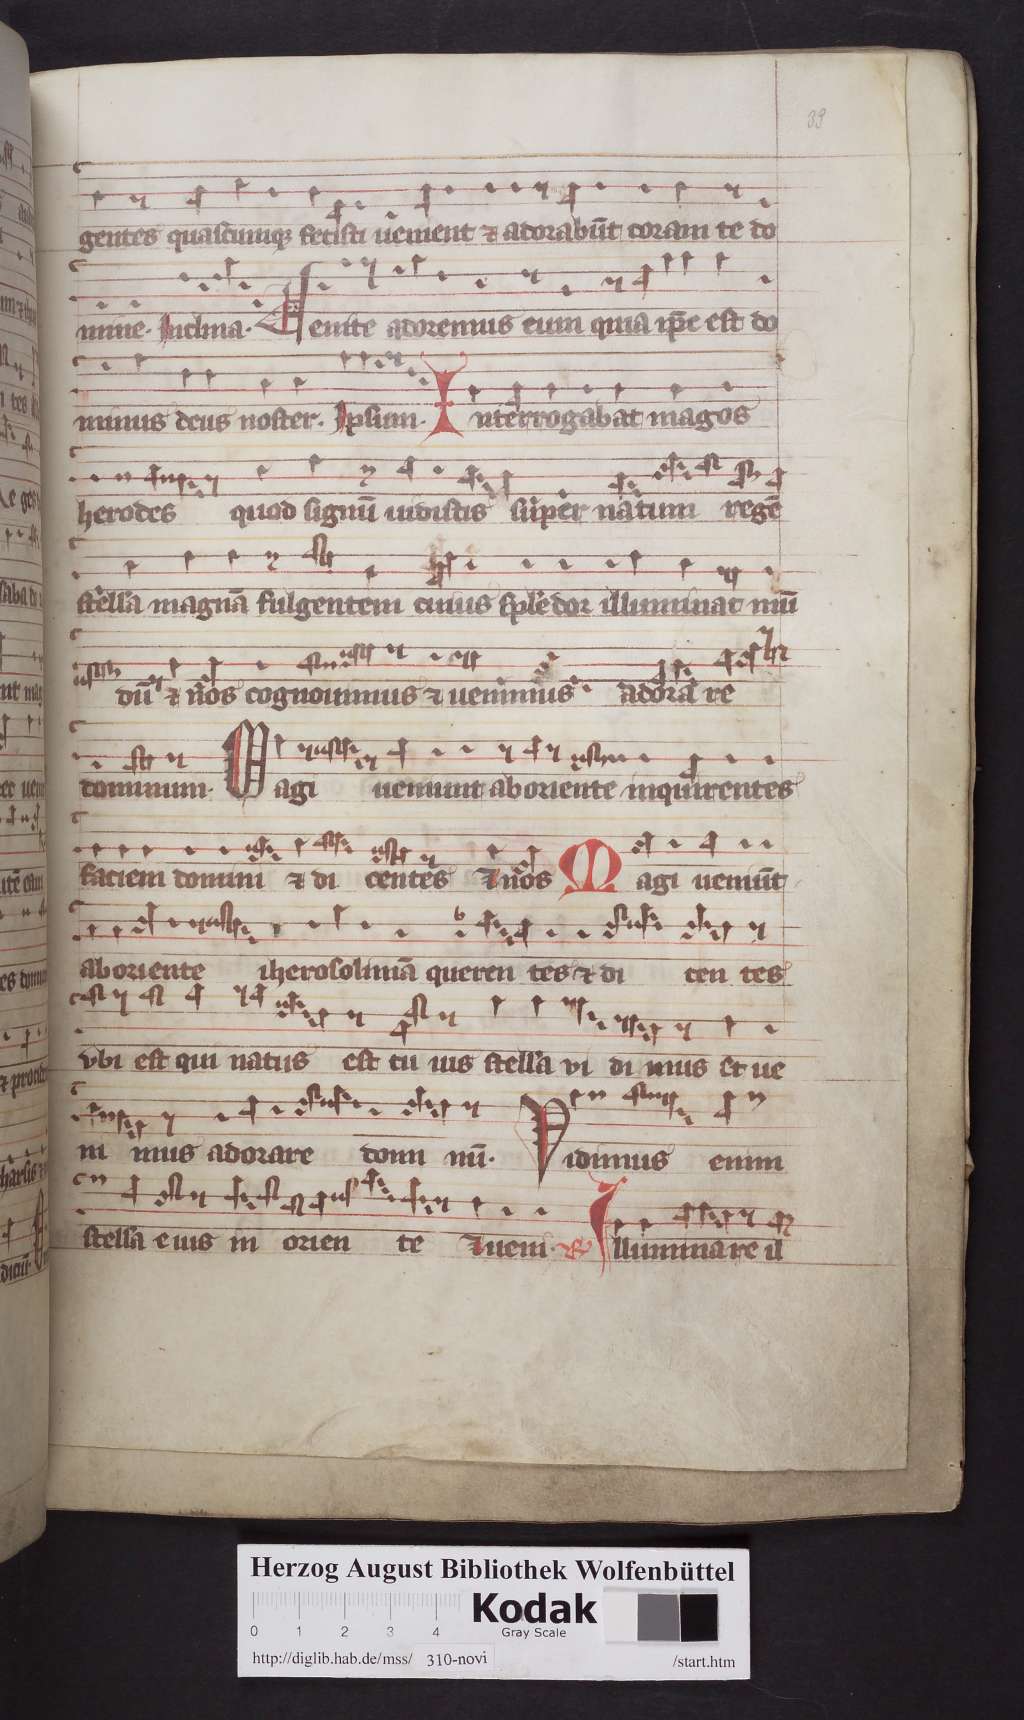 39
gentes quascunqꝫ fecisti uenient ⁊ adorabūt coram te do
mine. Inclina. Uenite adoremus eum quia ip̄e est do
minus deus noster. Ipsum. Interrogabat magos
herodes quod signū uidistis super natum regē
stella magnā fulgentem cuius splēdor illuminat mū
dū ⁊ nos cognouimus ⁊ uenimus adorare
dominum. Magi ueniunt ab oriente inquirentes
faciem domini ⁊ di centes ⁊ nos Magi ueniūt
ab oriente iherosolimā queren tes ⁊ di cen tes
vbi est qui natus est cu ius stella vi di mus et ue
ni mus adorare domi nū. Vidimus enim
stella eius in orien te ⁊ ueni. Illuminare il
Herzog August Bibliothek Wolfenbüttel
0 1 2 3 4
Kodak
Gray Scale
http://diglib.hab.de/mss/ 310-novi /start.htm